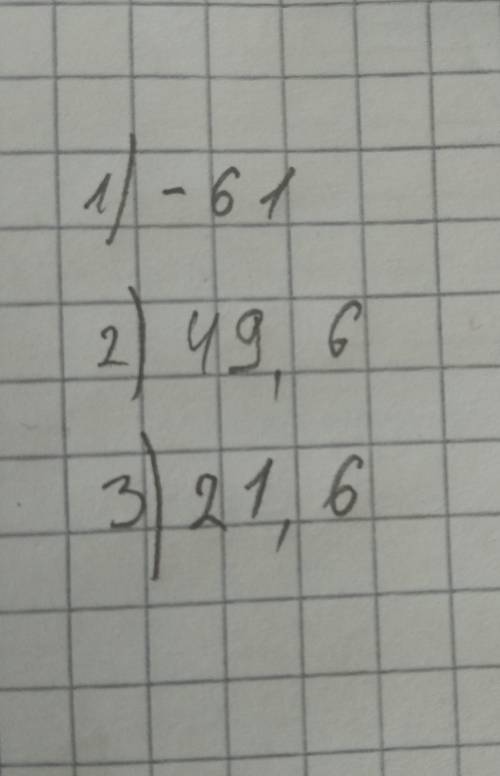 1) -61
2) 49,6
3) 21,6